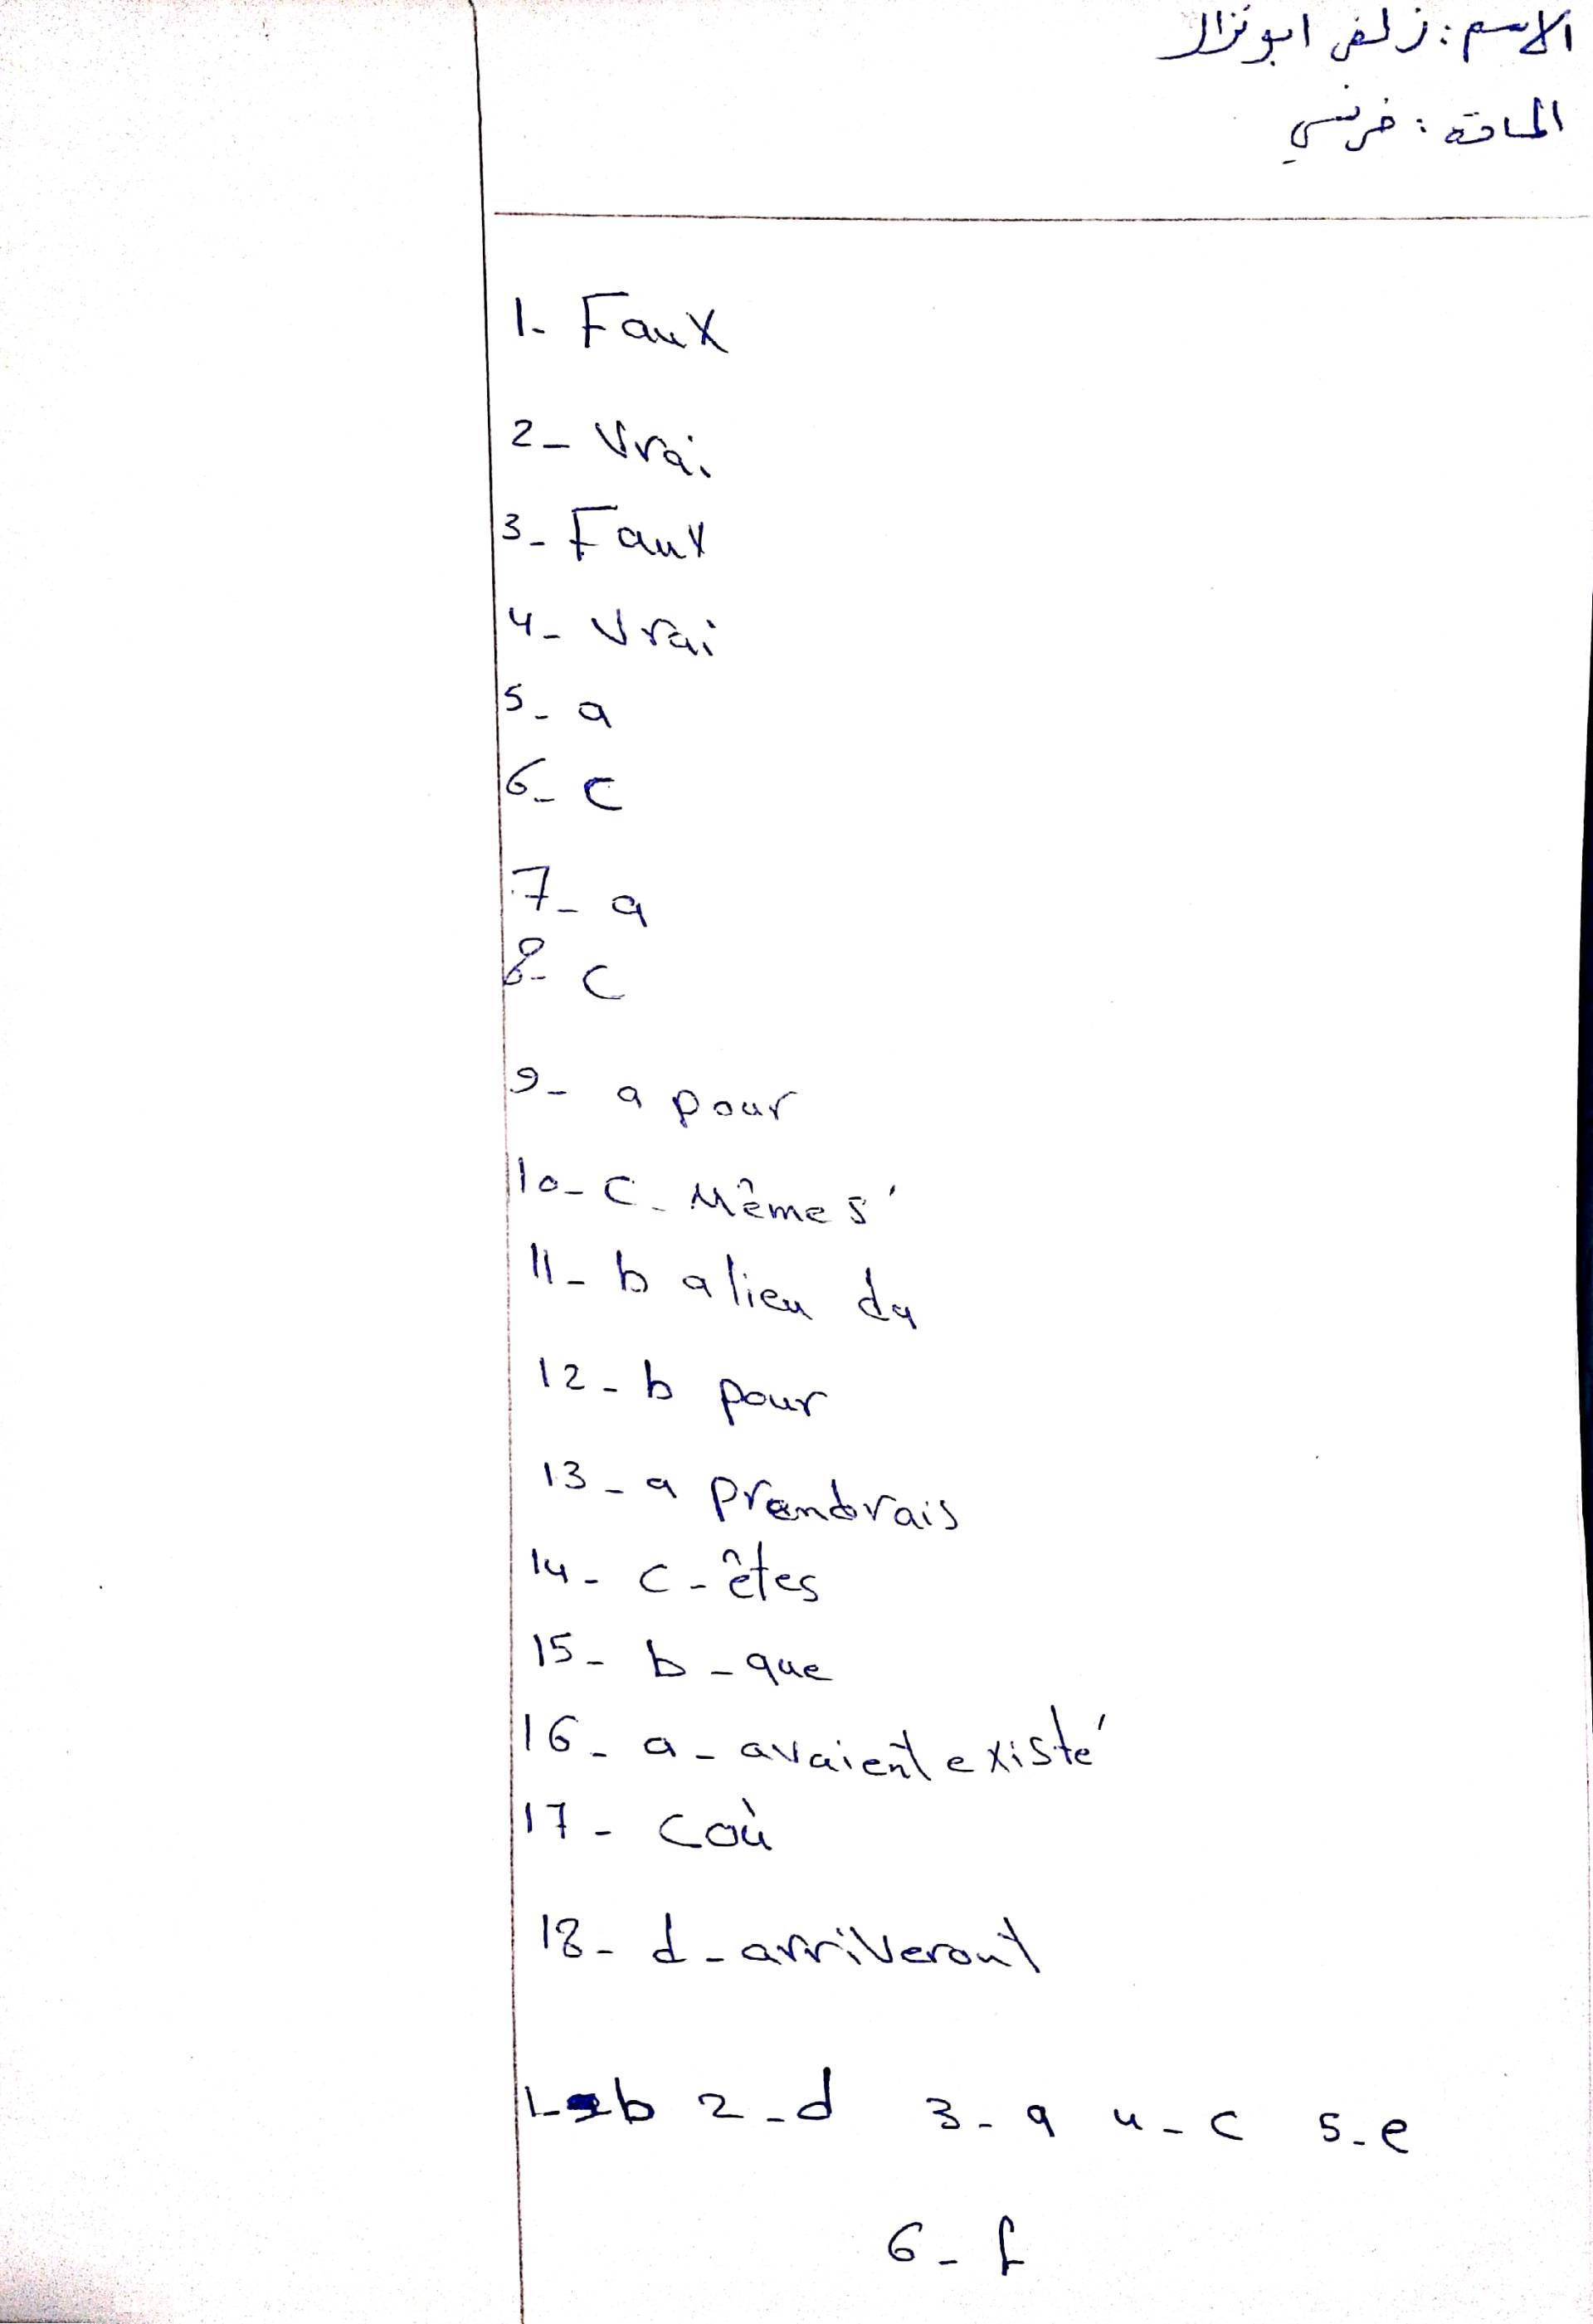 الاسم : زلفى ابو نزال
المادة : فرنسي
1- Faux
2- Vrai
3- Faux
4- Vrai
5- a
6- c
7- a
8- c
9- a pour
10- c- Même s'
11- b a lieu du
12- b pour
13- a prendrais
14- c- êtes
15- b- que
16- a- avaient existé
17- c où
18- d- arriveront
1- b 2-d 3-a 4-c 5-e
6-f